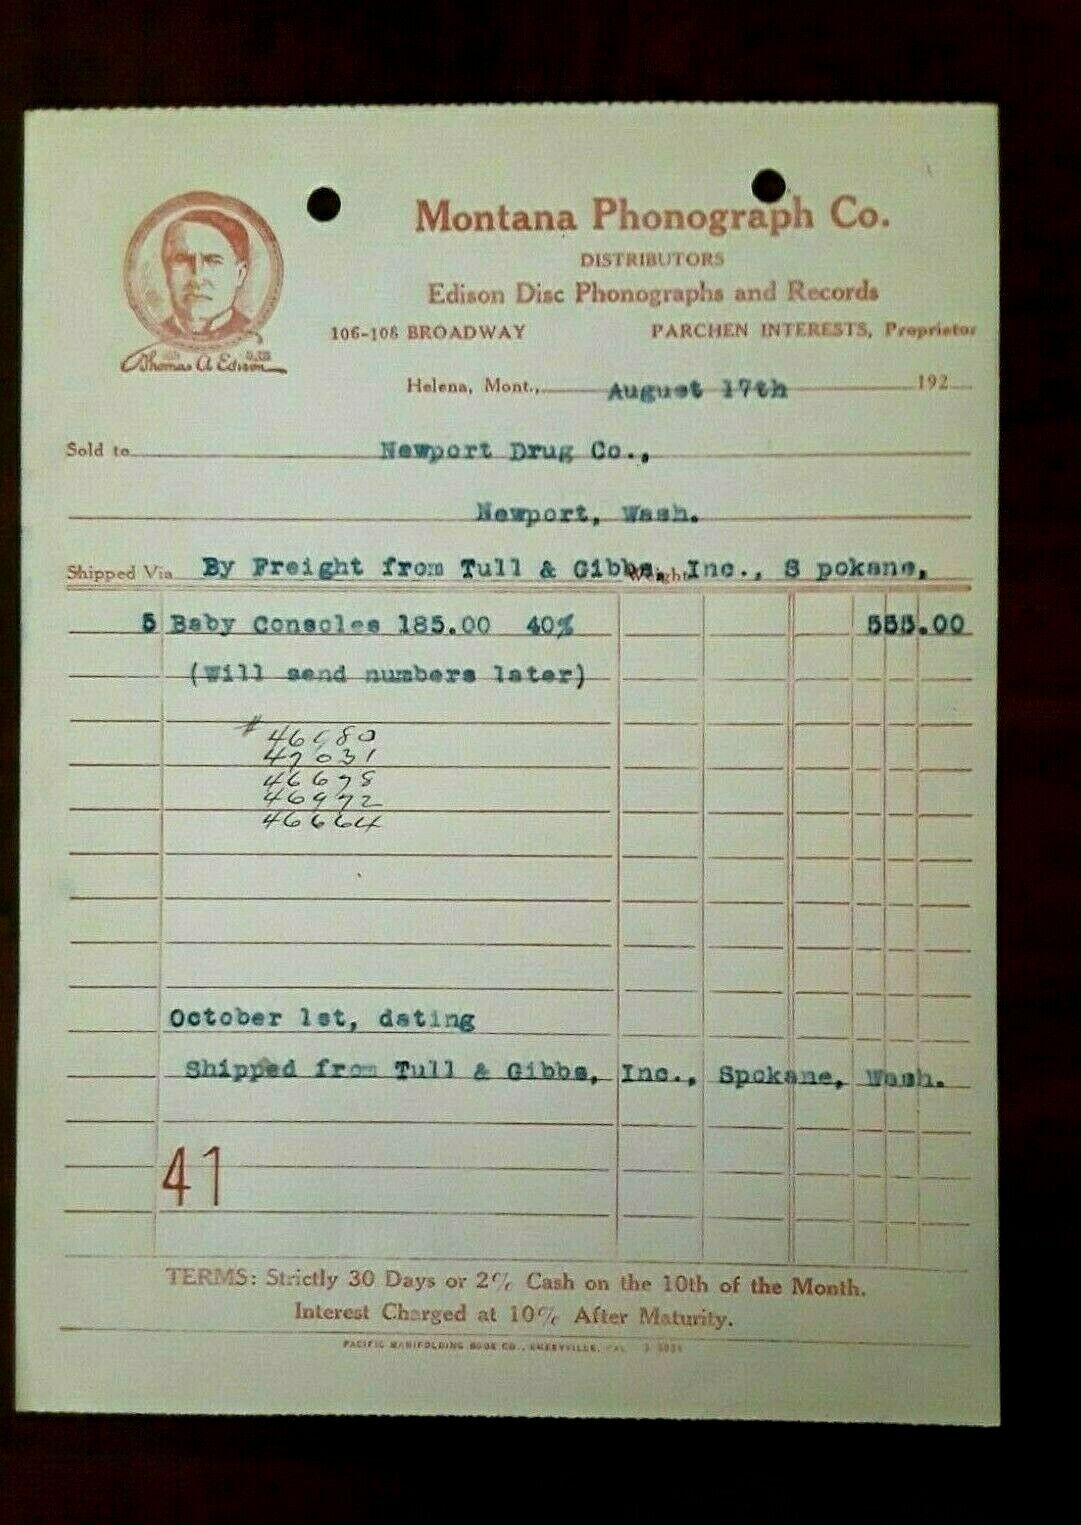 Montana Phonograph Co.
DISTRIBUTORS
Edison Disc Phonographs and Records
106-108 BROADWAY PARCHEN INTERESTS, Proprietor
Thomas A Edison
Helena, Mont., August 17th 192
Sold to Newport Drug Co.,
Newport, Wash.
Shipped Via By Freight from Tull & Gibbs, Inc., S pokane, Weight
5 Baby Consoles 185.00 40% 555.00
(Will send numbers later)
# 46680
47031
46678
46972
46664
October 1st, dating
Shipped from Tull & Gibbs, Inc., Spokane, Wash.
41
TERMS: Strictly 30 Days or 2% Cash on the 10th of the Month.
Interest Charged at 10% After Maturity.
PACIFIC MANIFOLDING BOOK CO., EMERYVILLE, CAL.